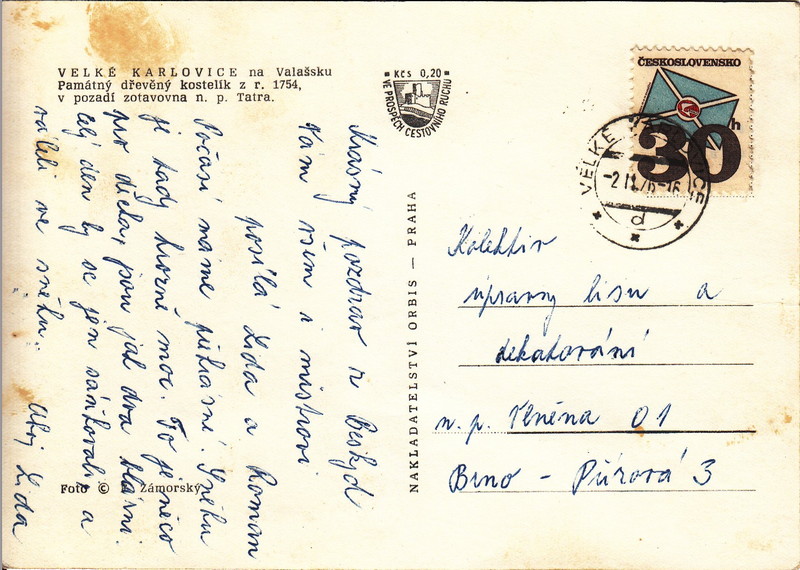 VELKÉ KARLOVICE na Valašsku
Památný dřevěný kostelík z r. 1754,
v pozadí zotavovna n. p. Tatra.
Kčs 0,20
VE PROSPĚCH CESTOVNÍHO RUCHU
ČESKOSLOVENSKO
30h
VELKÉ
-2.II.76-16
d
Krásný pozdrav z Beskyd
Vám všem i mistrovi
posílá Lida a Roman
Počasí máme překrásné. Sněhu
je tady hrozně moc. To je něco
pro dicka, jsou jak dva blázni.
celý den by se jen sáňkovali a
váleli ve sněhu.
Ahoj Lida
NAKLADATELSTVÍ ORBIS — PRAHA
Kolektiv
úpravny lisu a
dekatování
n. p. Vlněna 01
Brno - Přízová 3
Foto © Zámorský